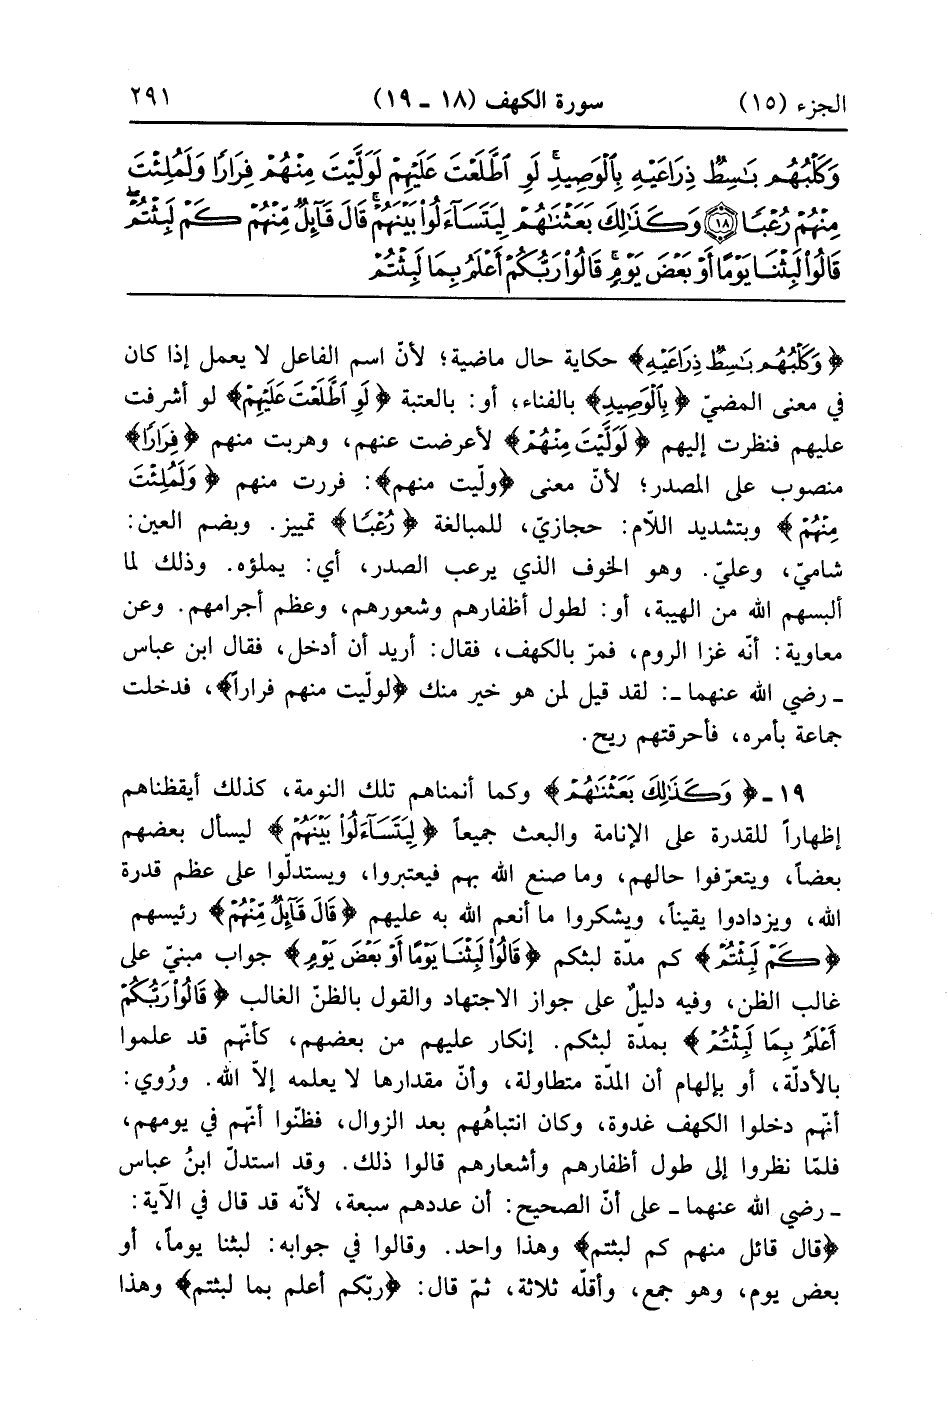 الجزء (١٥) سورة الكهف (١٨ - ١٩) ٢٩١
وَكَلْبُهُم بَٰسِطٌ ذِرَاعَيْهِ بِٱلْوَصِيدِ ۚ لَوِ ٱطَّلَعْتَ عَلَيْهِمْ لَوَلَّيْتَ مِنْهُمْ فِرَارًا وَلَمُلِئْتَ
مِنْهُمْ رُعْبًا ﴿١٨﴾ وَكَذَٰلِكَ بَعَثْنَٰهُمْ لِيَتَسَآءَلُوا۟ بَيْنَهُمْ ۚ قَالَ قَآئِلٌ مِّنْهُمْ كَمْ لَبِثْتُمْ ۖ
قَالُوا۟ لَبِثْنَا يَوْمًا أَوْ بَعْضَ يَوْمٍ ۚ قَالُوا۟ رَبُّكُمْ أَعْلَمُ بِمَا لَبِثْتُمْ
﴿وَكَلْبُهُم بَٰسِطٌ ذِرَاعَيْهِ﴾ حكاية حال ماضية؛ لأنّ اسم الفاعل لا يعمل إذا كان
في معنى المضيّ ﴿بِٱلْوَصِيدِ﴾ بالفناء، أو: بالعتبة ﴿لَوِ ٱطَّلَعْتَ عَلَيْهِمْ﴾ لو أشرفت
عليهم فنظرت إليهم ﴿لَوَلَّيْتَ مِنْهُمْ﴾ لأعرضت عنهم، وهربت منهم ﴿فِرَارًا﴾
منصوب على المصدر؛ لأنّ معنى ﴿ولّيت منهم﴾: فررت منهم ﴿وَلَمُلِئْتَ
مِنْهُمْ﴾ وبتشديد اللّام: حجازيّ، للمبالغة ﴿رُعْبًا﴾ تمييز. وبضم العين:
شاميّ، وعليّ. وهو الخوف الذي يرعب الصدر، أي: يملؤه. وذلك لما
ألبسهم الله من الهيبة، أو: لطول أظفارهم وشعورهم، وعظم أجرامهم. وعن
معاوية: أنّه غزا الروم، فمرّ بالكهف، فقال: أريد أن أدخل، فقال ابن عباس
ـ رضي الله عنهما ـ: لقد قيل لمن هو خير منك ﴿لولّيت منهم فراراً﴾، فدخلت
جماعة بأمره، فأحرقتهم ريح.
١٩ ـ ﴿وَكَذَٰلِكَ بَعَثْنَٰهُمْ﴾ وكما أنمناهم تلك النومة، كذلك أيقظناهم
إظهاراً للقدرة على الإنامة والبعث جميعاً ﴿لِيَتَسَآءَلُوا۟ بَيْنَهُمْ﴾ ليسأل بعضهم
بعضاً، ويتعرّفوا حالهم، وما صنع الله بهم فيعتبروا، ويستدلّوا على عظم قدرة
الله، ويزدادوا يقيناً، ويشكروا ما أنعم الله به عليهم ﴿قَالَ قَآئِلٌ مِّنْهُمْ﴾ رئيسهم
﴿كَمْ لَبِثْتُمْ﴾ كم مدّة لبثكم ﴿قَالُوا۟ لَبِثْنَا يَوْمًا أَوْ بَعْضَ يَوْمٍ﴾ جواب مبنيّ على
غالب الظن، وفيه دليلٌ على جواز الاجتهاد والقول بالظنّ الغالب ﴿قَالُوا۟ رَبُّكُمْ
أَعْلَمُ بِمَا لَبِثْتُمْ﴾ بمدّة لبثكم. إنكار عليهم من بعضهم، كأنّهم قد علموا
بالأدلّة، أو بإلهام أن المدّة متطاولة، وأنّ مقدارها لا يعلمه إلاّ الله. ورُوي:
أنّهم دخلوا الكهف غدوة، وكان انتباهُهم بعد الزوال، فظنّوا أنّهم في يومهم،
فلمّا نظروا إلى طول أظفارهم وأشعارهم قالوا ذلك. وقد استدلّ ابنُ عباس
ـ رضي الله عنهما ـ على أنّ الصحيح: أن عددهم سبعة، لأنّه قد قال في الآية:
﴿قال قائل منهم كم لبثتم﴾ وهذا واحد. وقالوا في جوابه: لبثنا يوماً، أو
بعض يوم، وهو جمع، وأقلّه ثلاثة، ثمّ قال: ﴿ربّكم أعلم بما لبثتم﴾ وهذا